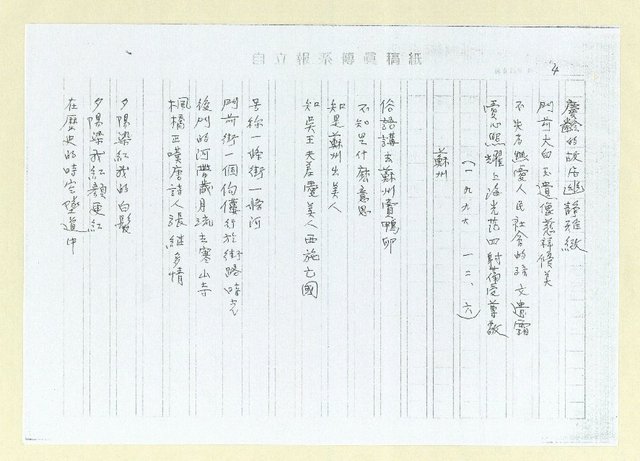 自立報系傳真稿紙
4
慶齡的故居幽靜雅緻
門前大白玉遺像慈祥優美
不失為熱愛人民社會的孫文遺孀
愛心照耀上海光芒四射備受尊敬
(一九九六 一二、六)
蘇州
俗語講去蘇州賣鴨卵
不知是什麼意思
知是蘇州出美人
知吳王夫差愛美人西施亡國
號稱一條街一條河
門前街一個佝僂行於街路時光
後門的河帶歲月流去寒山寺
楓橋正嘆唐詩人張繼多情
夕陽染紅我的白髮
夕陽染我紅顏更紅
在歷史的時空隧道中